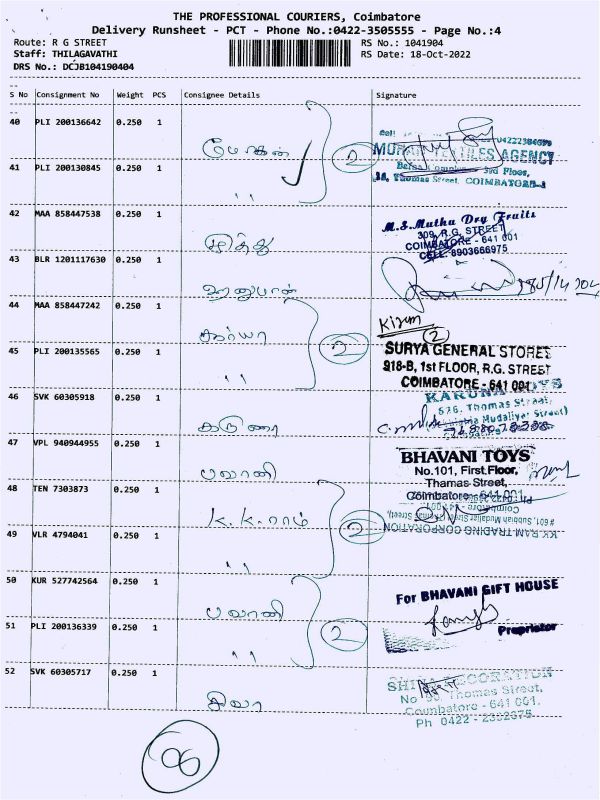 THE PROFESSIONAL COURIERS, Coimbatore
Delivery Runsheet - PCT - Phone No.:0422-3505555 - Page No.:4
Route: R G STREET
RS No.: 1041904
Staff: THILAGAVATHI
RS Date: 18-Oct-2022
DRS No.: DCJB104190404
S No Consignment No Weight PCS Consignee Details Signature
40 PLI 200136642 0.250 1
மோகன்
2
MOHAN TEXTILES AGENCY
3rd Floor,
Thomas Street, COIMBATORE-1
41 PLI 200130845 0.250 1
,,
42 MAA 858447538 0.250 1
முத்து
M.S.Muthu Dry Fruits
309, R.G. STREET
COIMBATORE - 641 001
CELL: 8903666975
43 BLR 1201117630 0.250 1
ஹனுமான்
44 MAA 858447242 0.250 1
சூர்யா
2
Kiran
2
SURYA GENERAL STORES
918-B, 1st FLOOR, R.G. STREET
COIMBATORE - 641 001
45 PLI 200135565 0.250 1
,,
46 SVK 60305918 0.250 1
கருணா
KARUNA TOYS
576, Thomas Street,
47 VPL 940944955 0.250 1
பவானி
BHAVANI TOYS
No.101, First Floor,
Thamas Street,
Coimbatore - 641 001
48 TEN 7303873 0.250 1
K.K.ராம்
2
#601, Subbiah Mudaliar Street (Thomas Street),
KK RAM TRADING CORPORATION
49 VLR 4794041 0.250 1
,,
50 KUR 527742564 0.250 1
பவானி
2
For BHAVANI GIFT HOUSE
Proprietor
51 PLI 200136339 0.250 1
,,
52 SVK 60305717 0.250 1
சிவா
SHIVA DECORATION
Thomas Street,
Coimbatore - 641 001.
Ph 0422 - 2392675
06